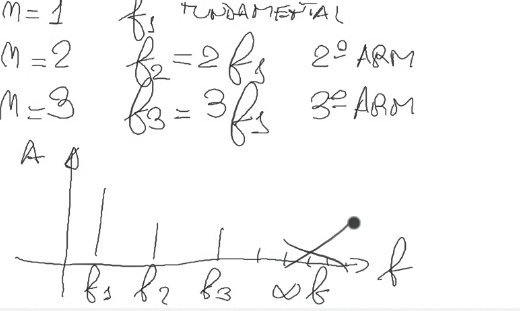 n=1 f1 FUNDAMENTAL
n=2 f2=2f1 2º ARM
n=3 f3=3f1 3º ARM
A
f
f1 f2 f3 ∞f